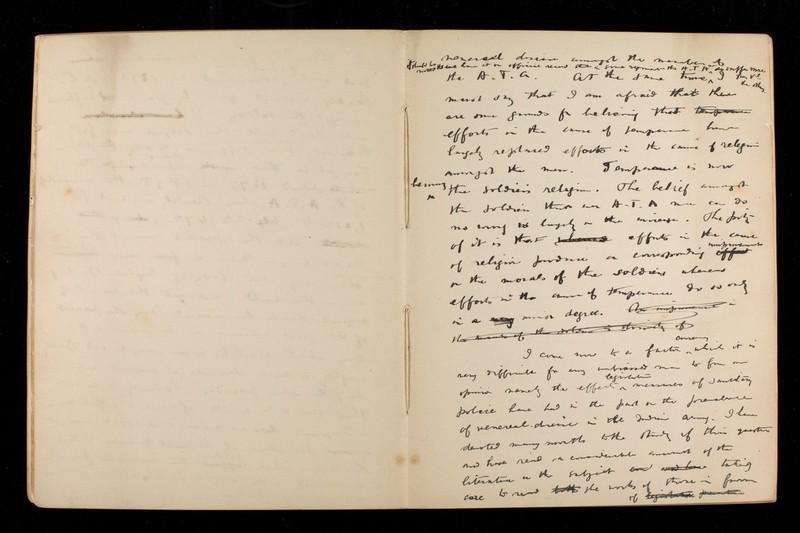 venereal disease amongst the members of
the A.T.A. At the same time, I
must say that I am afraid that there
are some grounds for believing that temperance
efforts in the cause of temperance have
largely replaced efforts in the cause of religion
amongst the men. Temperance is now
becoming
the soldiers religion. The belief amongst
the soldiers that an A.T.A man can do
no wrong is largely on the increase. The pity
of it is that whereas efforts in the cause
of religion produce a corresponding improvement effect
in the morals of the soldiers whereas
efforts in the cause of temperance do so only
in a very minor degree. An improvement in
the morals of the soldiers is directly of
I come now to a factor, concerning which it is
very difficult for any unbiassed man to form an
opinion namely the effects legislation measures of sanitary
police have had in the past on the prevalence
of venereal disease in the Indian army. I have
devoted many months to the study of this question
and have read a considerable amount of the
literature on the subject and taking
care to read both the works of those in favour
of